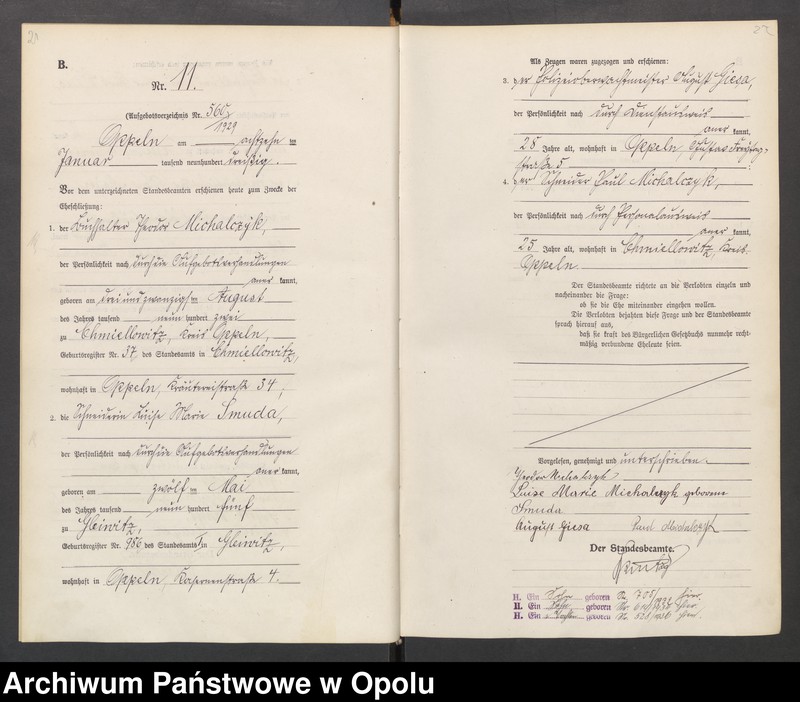 B.
Nr. 11.
(Aufgebotsverzeichnis Nr. 560/1929
Oppeln am achtzehn ten
Januar tausend neunhundert dreißig.
Vor dem unterzeichneten Standesbeamten erschienen heute zum Zwecke der
Eheschließung:
1. der Buchhalter Theodor Michalczyk,
der Persönlichkeit nach durch die Aufgebotsverhandlungen
aner kannt,
geboren am dreiundzwanzigsten August
des Jahres tausend neun hundert zwei
zu Chmiellowitz, Kreis Oppeln,
Geburtsregister Nr. 37, des Standesamts in Chmiellowitz,
wohnhaft in Oppeln, Kräutereistraße 34,
2. die Schneiderin Luise Marie Smuda,
der Persönlichkeit nach durch die Aufgebotsverhandlungen
aner kannt,
geboren am zwölf ten Mai
des Jahres tausend neun hundert fünf
zu Gleiwitz,
Geburtsregister Nr. 986 des Standesamts I in Gleiwitz,
wohnhaft in Oppeln, Kasernenstraße 4.
Als Zeugen waren zugezogen und erschienen:
3. der Polizeioberwachtmeister August Giesa,
der Persönlichkeit nach durch Dienstausweis
aner kannt,
28 Jahre alt, wohnhaft in Oppeln, Gustav Freytag-
straße 5 ;
4. der Schneider Paul Michalczyk,
der Persönlichkeit nach durch Personalausweis
aner kannt,
25 Jahre alt, wohnhaft in Chmiellowitz, Kreis
Oppeln.
Der Standesbeamte richtete an die Verlobten einzeln und
nacheinander die Frage:
ob sie die Ehe miteinander eingehen wollen.
Die Verlobten bejahten diese Frage und der Standesbeamte
sprach hierauf aus,
daß sie kraft des Bürgerlichen Gesetzbuchs nunmehr recht-
mäßig verbundene Eheleute seien.
Vorgelesen, genehmigt und unterschrieben.
Theodor Michalczyk
Luise Marie Michalczyk geborene
Smuda
August Giesa Paul Michalczyk
Der Standesbeamte.
H. Ein Sohn geboren Nr. 708/ hier.
H. Ein Sohn geboren Nr. hier
H. Ein geboren Nr. 528/1936 hier.
Archiwum Państwowe w Opolu